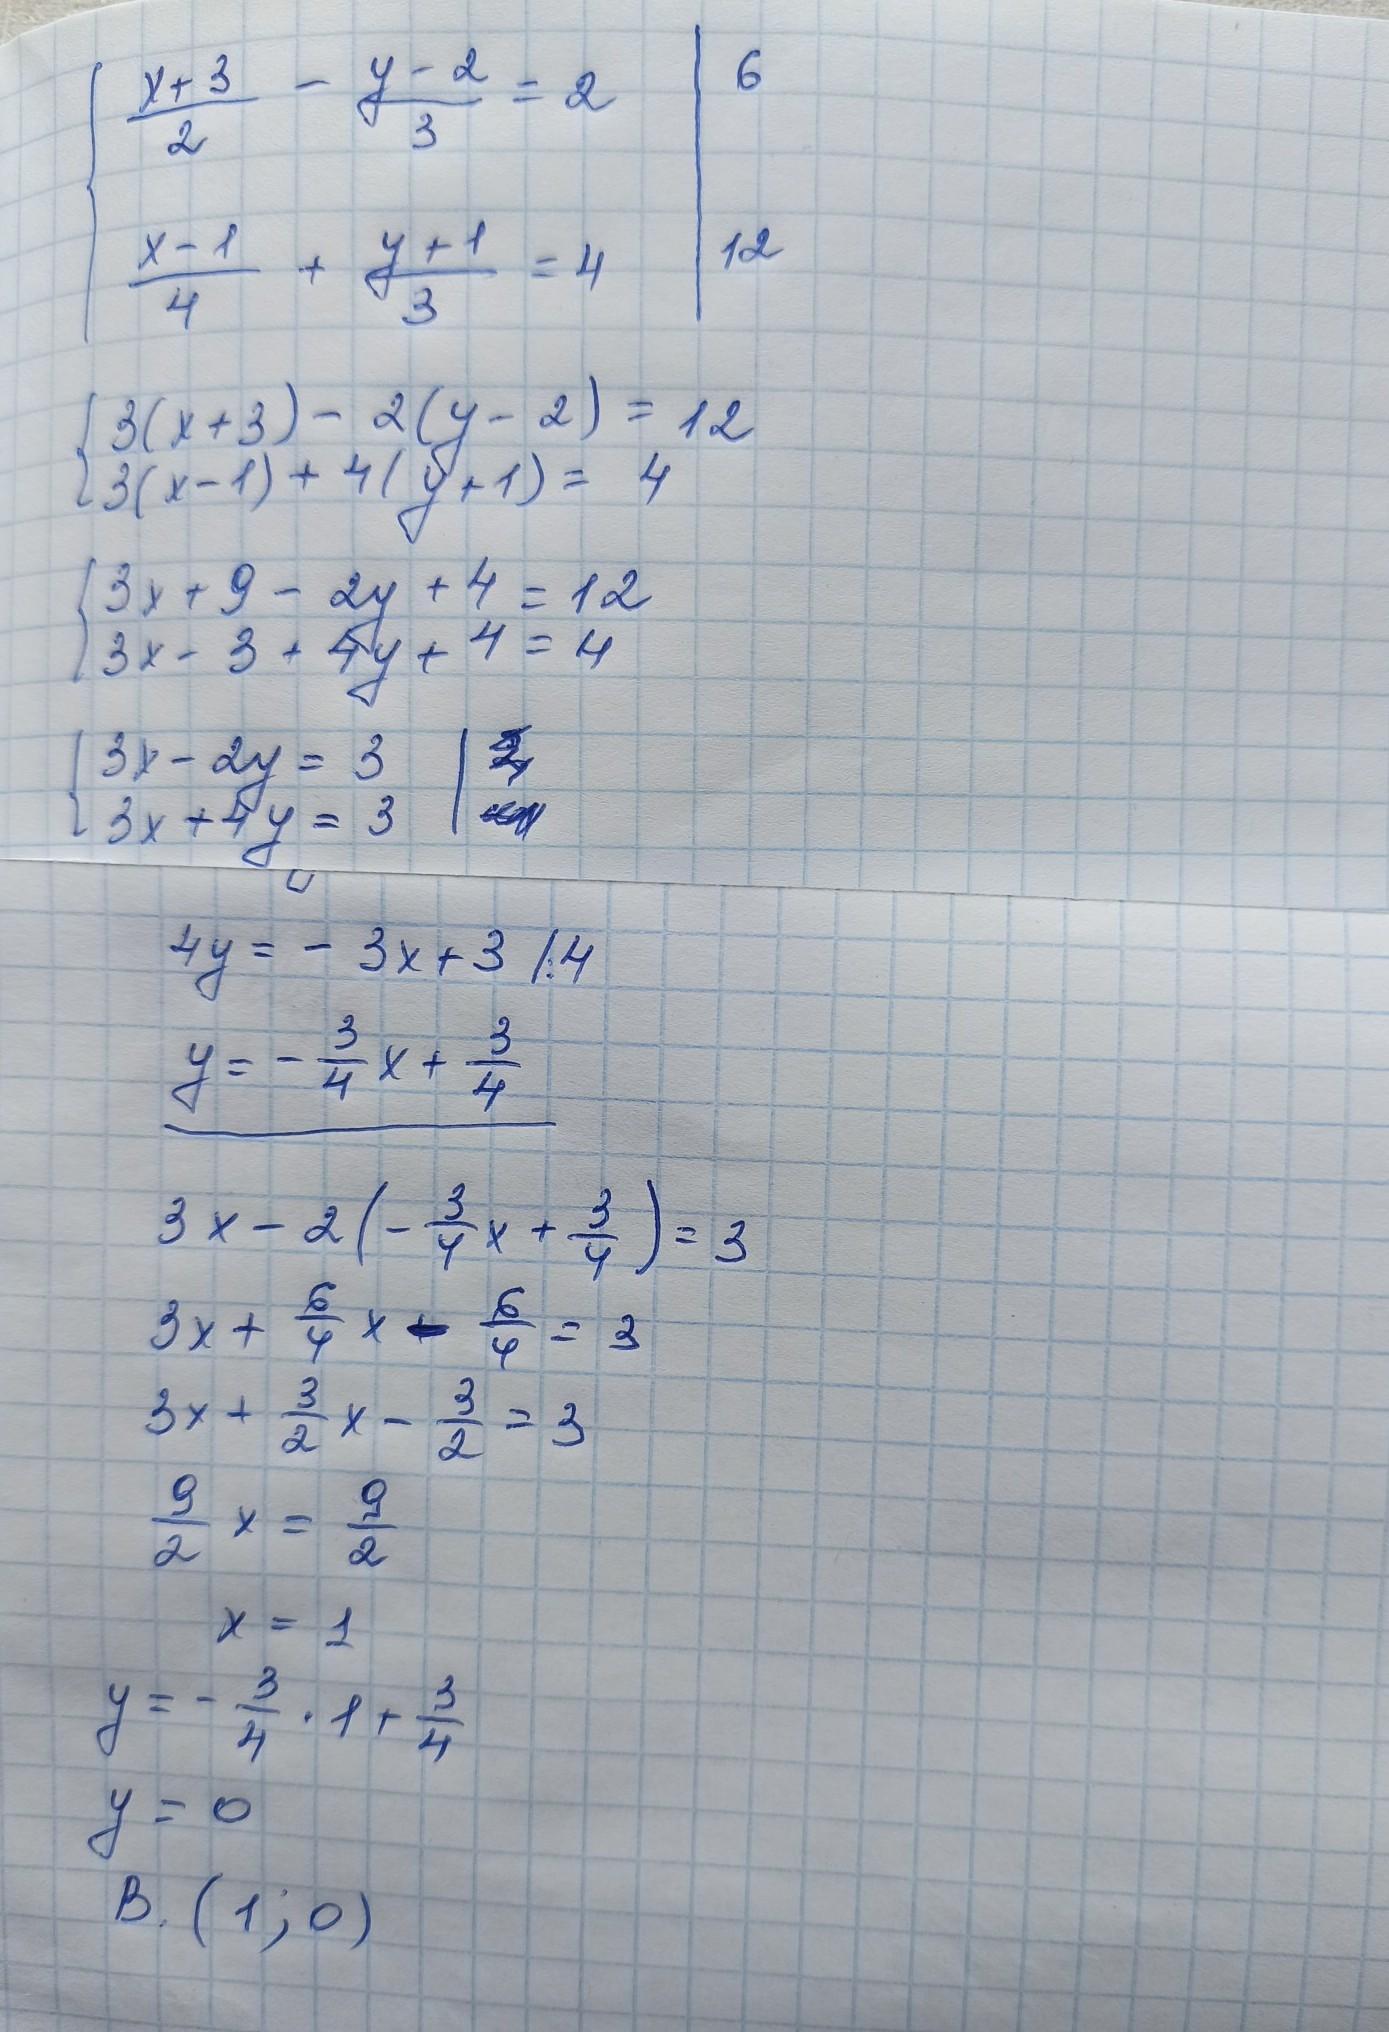 x+3/2 - y-2/3 = 2 | 6
x-1/4 + y+1/3 = 4 | 12
3(x+3) - 2(y-2) = 12
3(x-1) + 4(y+1) = 4
3x + 9 - 2y + 4 = 12
3x - 3 + 4y + 4 = 4
3x - 2y = 3 |
3x + 4y = 3 |
4y = - 3x + 3 /:4
y = - 3/4 x + 3/4
3x - 2(- 3/4 x + 3/4) = 3
3x + 6/4 x - 6/4 = 3
3x + 3/2 x - 3/2 = 3
9/2 x = 9/2
x = 1
y = - 3/4 · 1 + 3/4
y = 0
В. (1; 0)